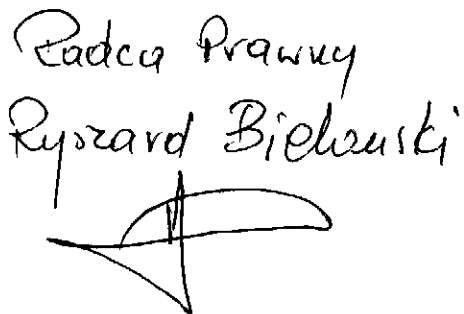 Radca Prawny
Ryszard Bielawski